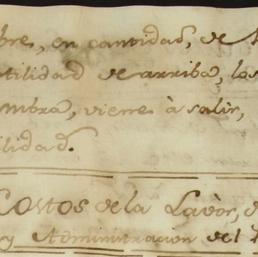 bre, en cantidad, de
utilidad de arriba, los
ombra, viene à salir,
ilidad.
Costos de la Lavòr,
y Administracion del